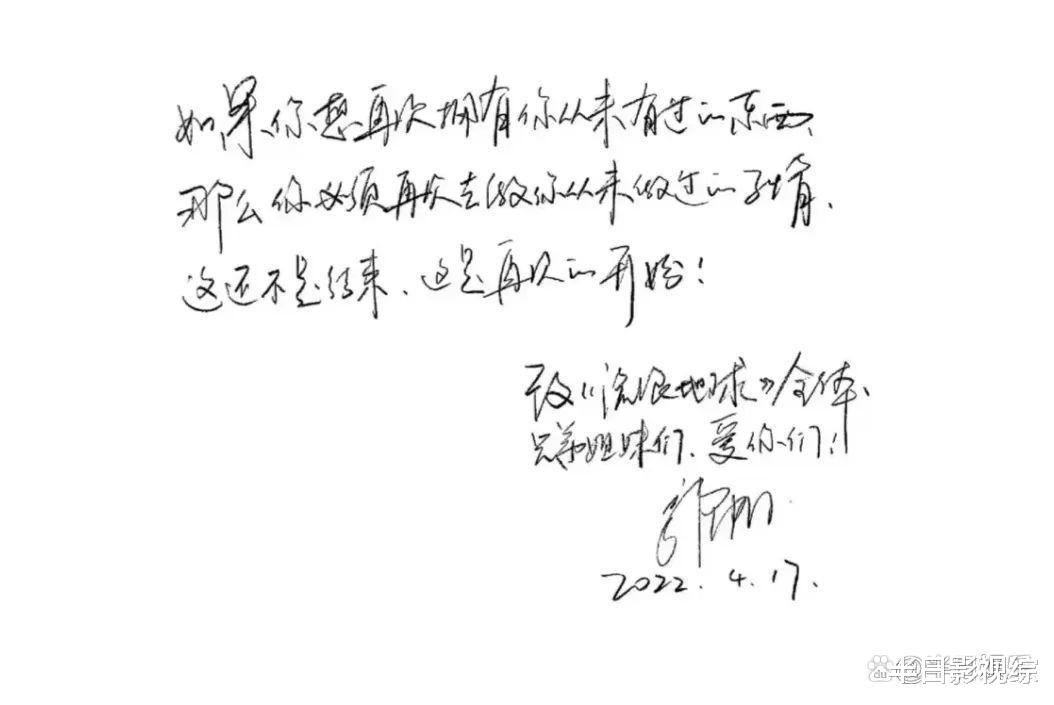 如果你想再次拥有你从来有过的东西、
那么你必须再次去做你从来做过的事情、
这还不是结束、这是再次的开始!
致《流浪地球》全体、
兄弟姐妹们、爱你们!
郭帆
2022.4.17.
影视综